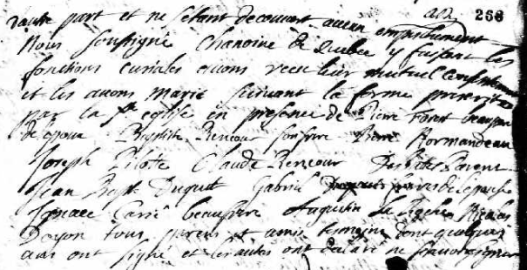 268
vautre part et ne sétant decouvert aucun empeschement
Nous soussigné Chanoine de Quebec y faisant les
fonctions curiales avons receu leur mutuel consentement
et les avons marié suivant la forme prescritte
par la Ste eglise en presence de Pierre
de epoux Baptiste Rencour son frere Pierre Normandeau
Joseph Pilote Claude Rencour Parent
Jean Bapt Duquet Gabriel de epouse
Ignace Carié beaufrere Augustin Nicolas
Doyon tous parens et amis temoins dont quelques
uns ont signé et les autres ont declaré ne scavoir signer